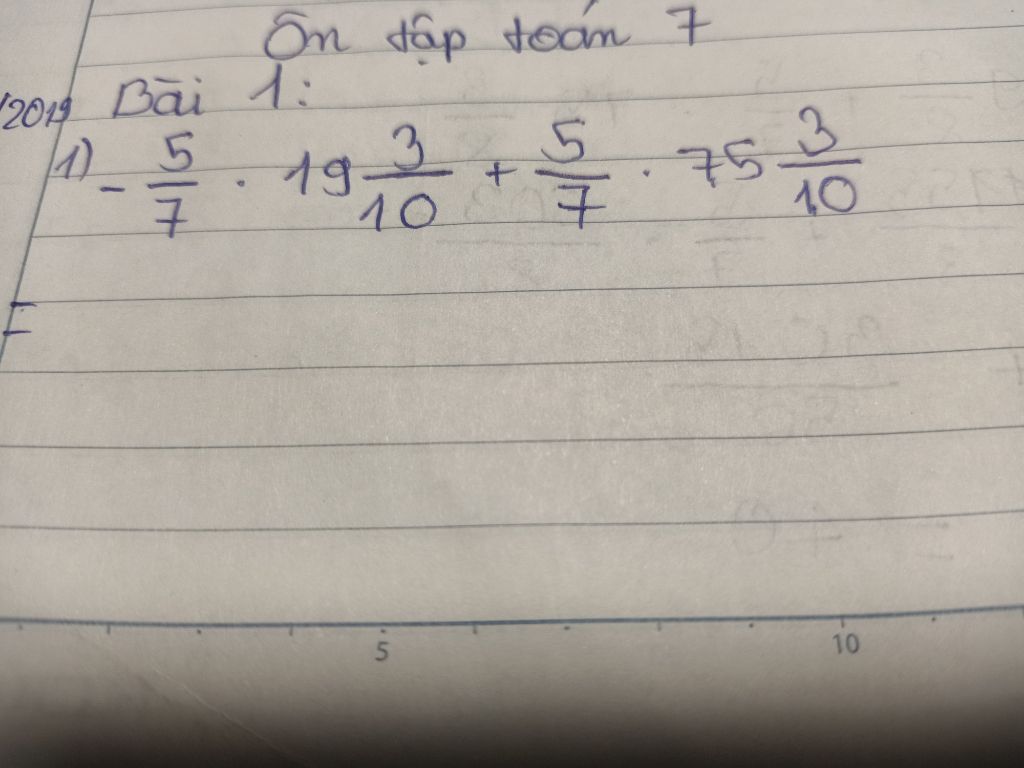 Ôn tập toán 7
/2019 Bài 1:
1) - 5/7 . 19 3/10 + 5/7 . 75 3/10
5 10